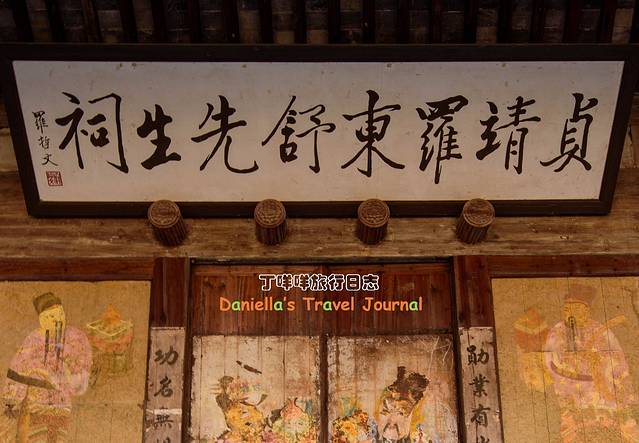 貞靖羅東舒先生祠
羅哲文
丁咩咩旅行日志
Daniella's Travel Journal
勛業有
功名無